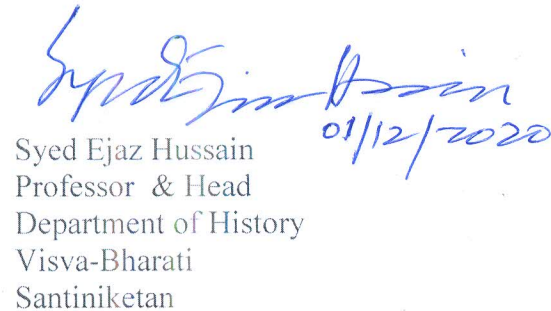 Syed Ejaz Hussain
01/12/2020
Syed Ejaz Hussain
Professor & Head
Department of History
Visva-Bharati
Santiniketan